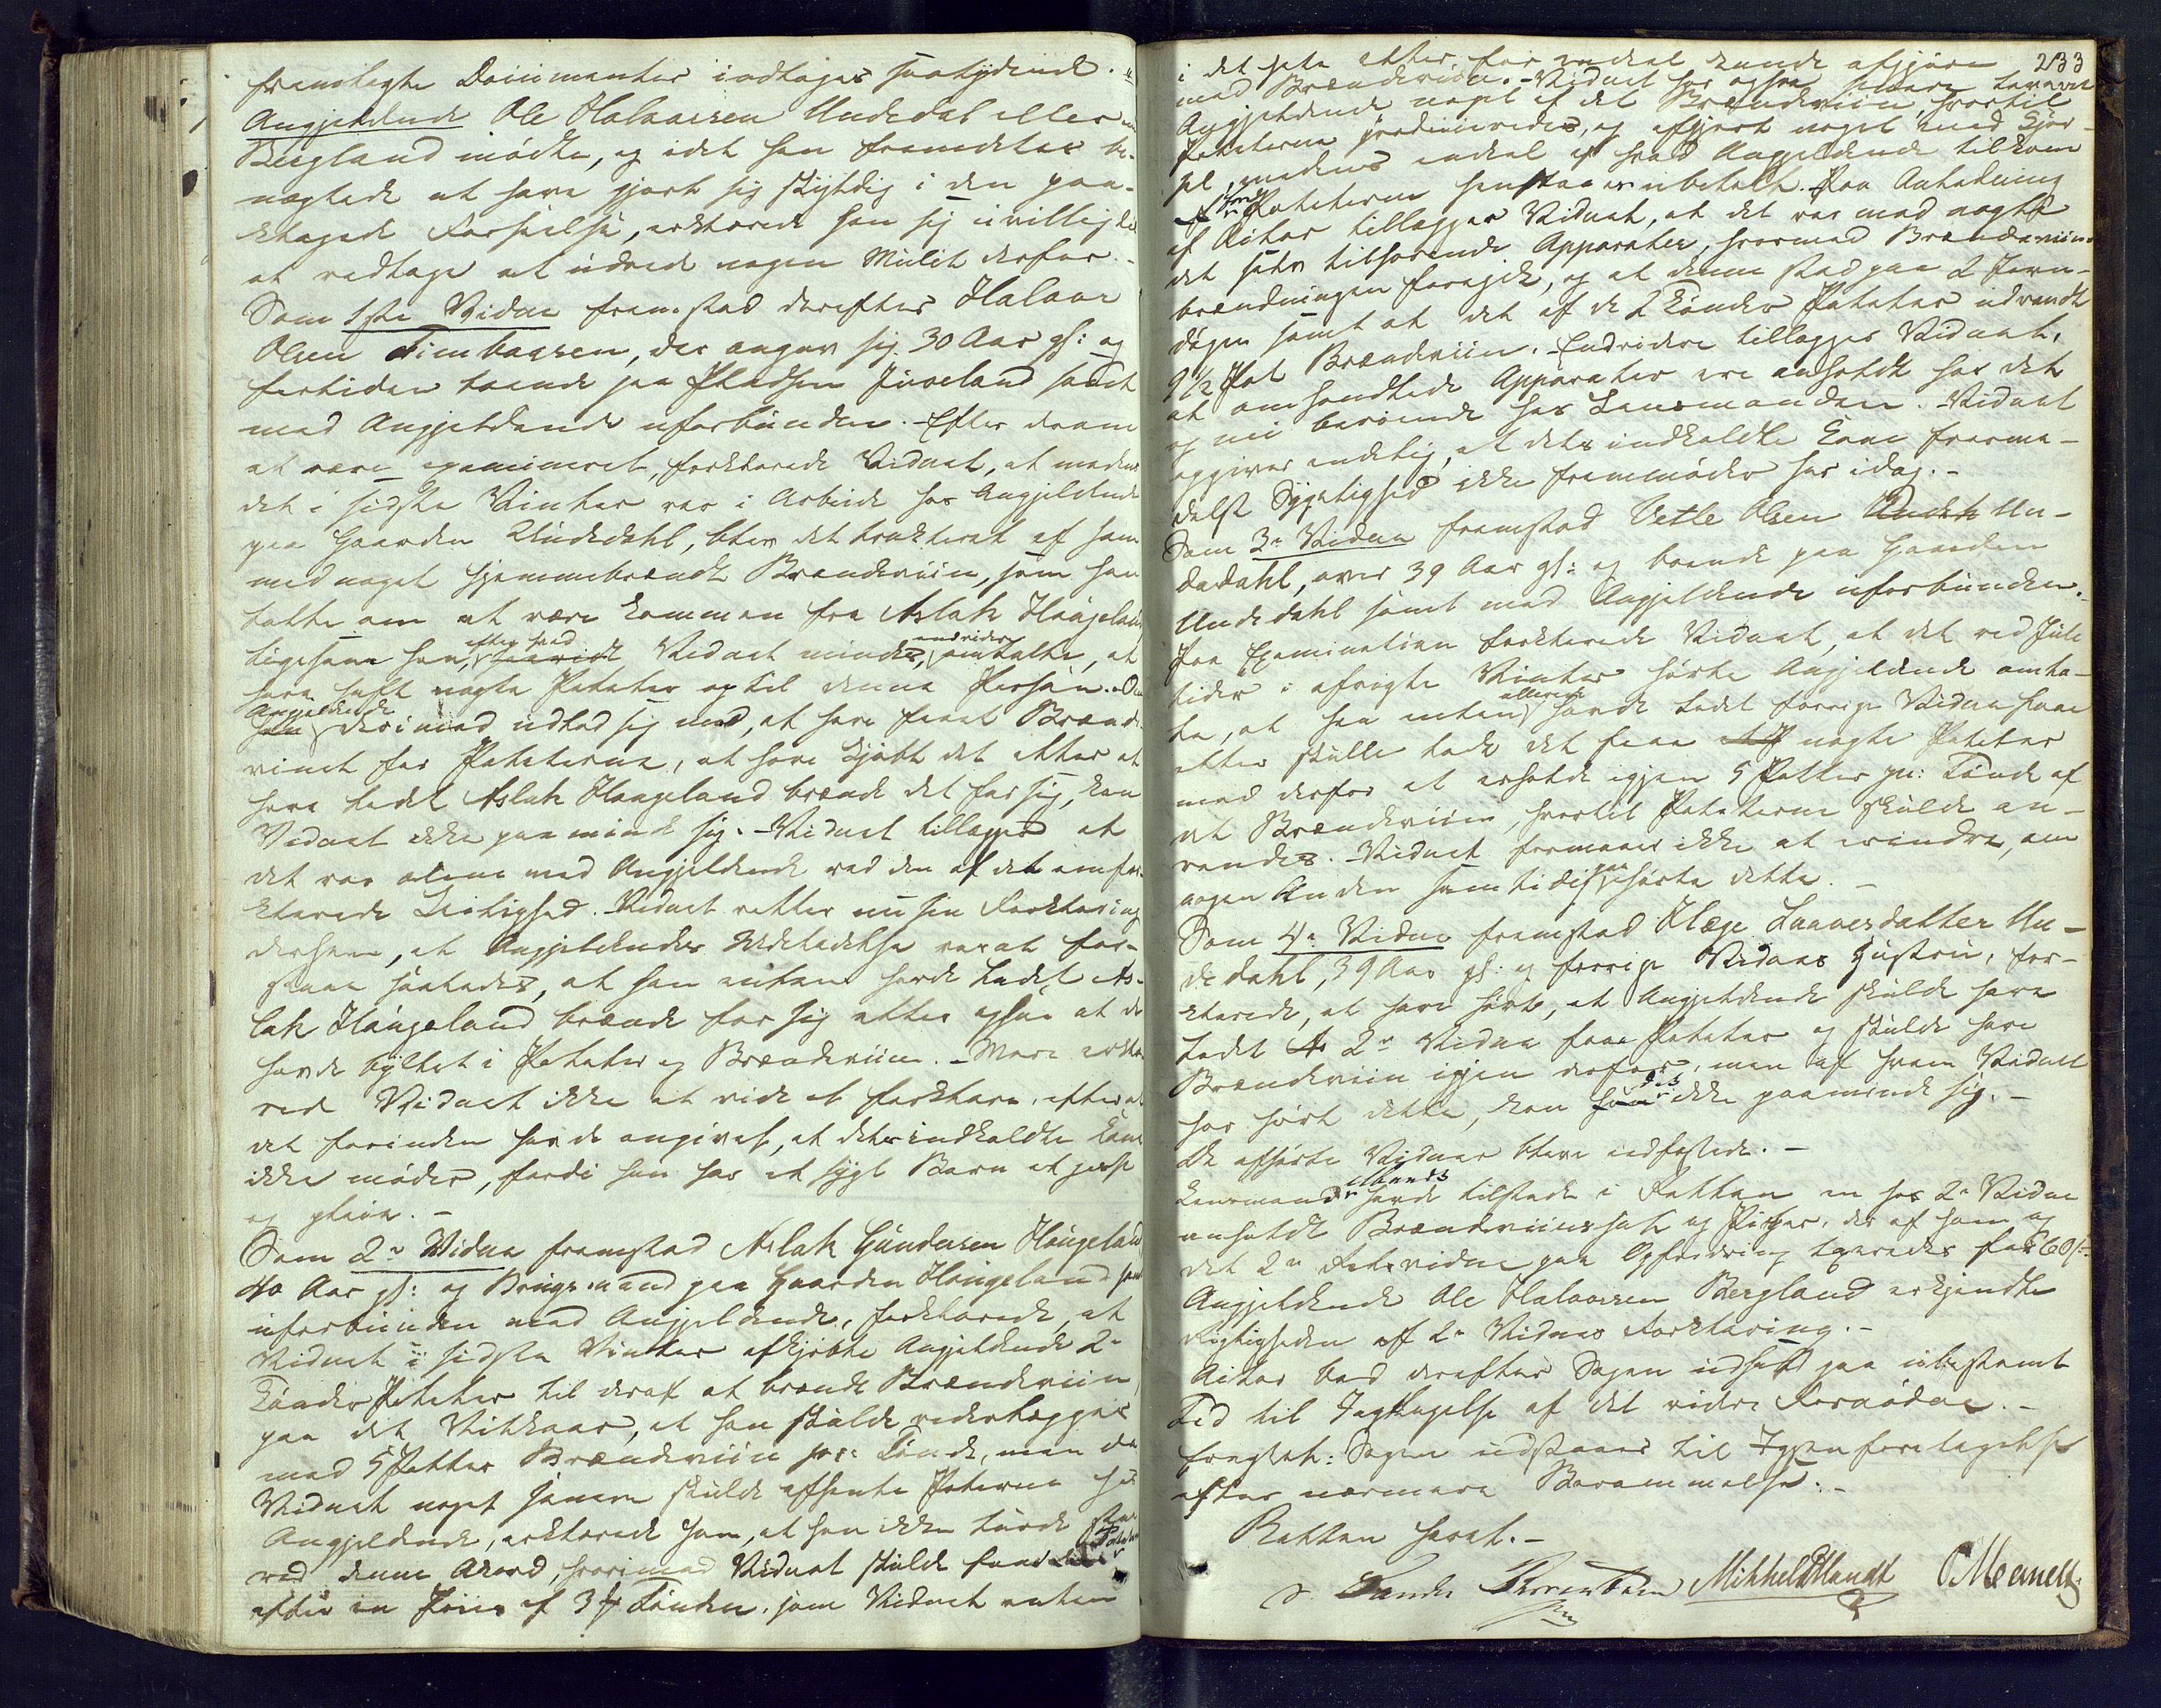 fremlagte Documenter indtages saalydende. "
Angjeldende Ole Halvorsen Undedal eller
Bergland mødte, og idet han fremdeles be-
nægtede at have gjort sig skyldig i den paa-
klagede Forseelse, erklærede han sig uvillig til
at vedtage at udrede nogen Mulct derfor. -
Som 1ste Vidne fremstod derefter Halvor
Olsen Timbaasen, der angav sig 30 Aar gl: og
fortiden boende paa Pladsen Juveland samt
med Angjeldende uforbunden. Efter derom
at være examineret, forklarede Vidnet, at medens
det i sidste Vinter var i Arbeide hos Angjeldende
paa Gaarden Undedahl, blev det trakteret af ham
med noget hjemmebrændt Brændeviin, som han
talte om at være kommen fra Aslak Haugeland
ligesom han, efter hvad Vidnet mindes, endvidere omtalte, at
have havt nogle Poteter op til denne Person. Om
Angjeldende derimod udlod sig med, at have faaet Brænde-
vinet for Poteterne, at have kjøbt det eller at
have ladet Aslak Haugeland brænde det for sig, kan
Vidnet ikke paaminde sig. Vidnet tillægger at
det var alene med Angjeldende ved den af det omfor-
klarede Leilighed. Vidnet retter nu sin Forklaring
derhen, at Angjeldendes Udeladelse var at for-
staae saaledes, at han enten havde ladet As-
lak Haugeland brænde for sig eller ogsaa at de
havde byttet i Poteter og Brændeviin. - Mere erklæ-
rede Vidnet ikke at vide at forklare, efterat
det forinden havde angivet, at dets indkaldte Kone
ikke møder, fordi hun har et sygt Barn at passe
og pleie. -
Som 2det Vidne fremstod Aslak Gundersen Haugeland
40 Aar gl: og Brugsmand paa Gaarden Haugeland samt
uforbunden med Angjeldende, forklarede, at
Vidnet i sidste Vinter afkjøbte Angjeldende 2
Tønder Poteter til deraf at brænde Brændeviin,
paa det Vilkaar, at han skulde vederlægges
med 5 Potter Brændeviin pr: Tønde, men da
Vidnet noget senere skulde afhente Poterne hos
Angjeldende, erklærede ham, at han ikke turde staae
ved denne Akord, hvorimod Vidnet skulde faae Poteterne
efter en Priis af 3 ₰ Tønden, som Vidnet enten
233
i det hele eller for endeel kunde afgjøre
med Brændeviin. - Vidnet har ogsaa senere leveret
Angjeldende noget af det Brændeviin, hvortil
Poteterne forbruvedes, og afgjort noget med Gjør-
sel, medens endeel af hvad Angjeldende tilkom
for Poteterne henstaaer ubetalt. Paa Anledning
af Actor tillægger Vidnet, at det var med nogle
det selv tilhørende Apparater, hvormed Brændeviins-
brændningen foregik, og at denne stod paa 2 Jevn-
døgn samt at det af de 2 Tønder Poteter udvandt
9½ Pot Brændeviin. Endvidere tillægger Vidnet,
at omhandlede Apparater ere anholdt hos det
og nu beroende hos Lensmanden. Vidnet
opgiver endelig, at dets indkaldte Kone formе-
delst Sygelighed ikke fremmøder her idag. -
Som 3die Vidne fremstod Vetle Olsen Un-
dedahl, over 39 Aar gl: og boende paa Gaarden
Undedahl samt med Angjeldende uforbunden. -
Paa Examination forklarede Vidnet, at det ved Jule-
tider i afvigte Vinter hørte Angjeldende omta-
le, at han enten allerede havde ladet forrige Vidne faae
eller skulle lade det faae nogle Poteter
mod derfor at erholde igjen 5 Potter pr: Tønde af
det Brændeviin, hvortil Poteterne skulde an-
vendes. Vidnet formaaer ikke at erindre, om
nogen Anden samtidig hørte dette. -
Som 4de Vidne fremstod Hæge Laavesdatter Un-
dedahl, 39 Aar gl: og forrige Vidnes Hustru, for-
klarede, at have hørt, at Angjeldende skulde have
ladet 2det Vidne faae Poteter og skulde have
Brændeviin igjen derfor, men af hvem Vidnet
har hørt dette, kan det ikke paaminde sig. -
De afhørte Vidner bleve edfæstede. -
Lensmand havde tilstede i Retten en hos 2det Vidne
anholdt Brændeviinshat og Piber, der af ham og
det 2det Retsvidne paa Opfordring taxeredes for 60 s:
Angjeldende Ole Halvorsen Bergland erkjendte
Rigtigheden af 2det Vidnes Forklaring. -
Actor bad derefter Sagen udsat paa ubestemt
Tid til Iagttagelse af det videre Fornødne. -
Eragtet: Sagen udstaaer til Igjenforetagelse
efter nærmere Berammelse. -
Retten hævet. -
Mikkel Mandt